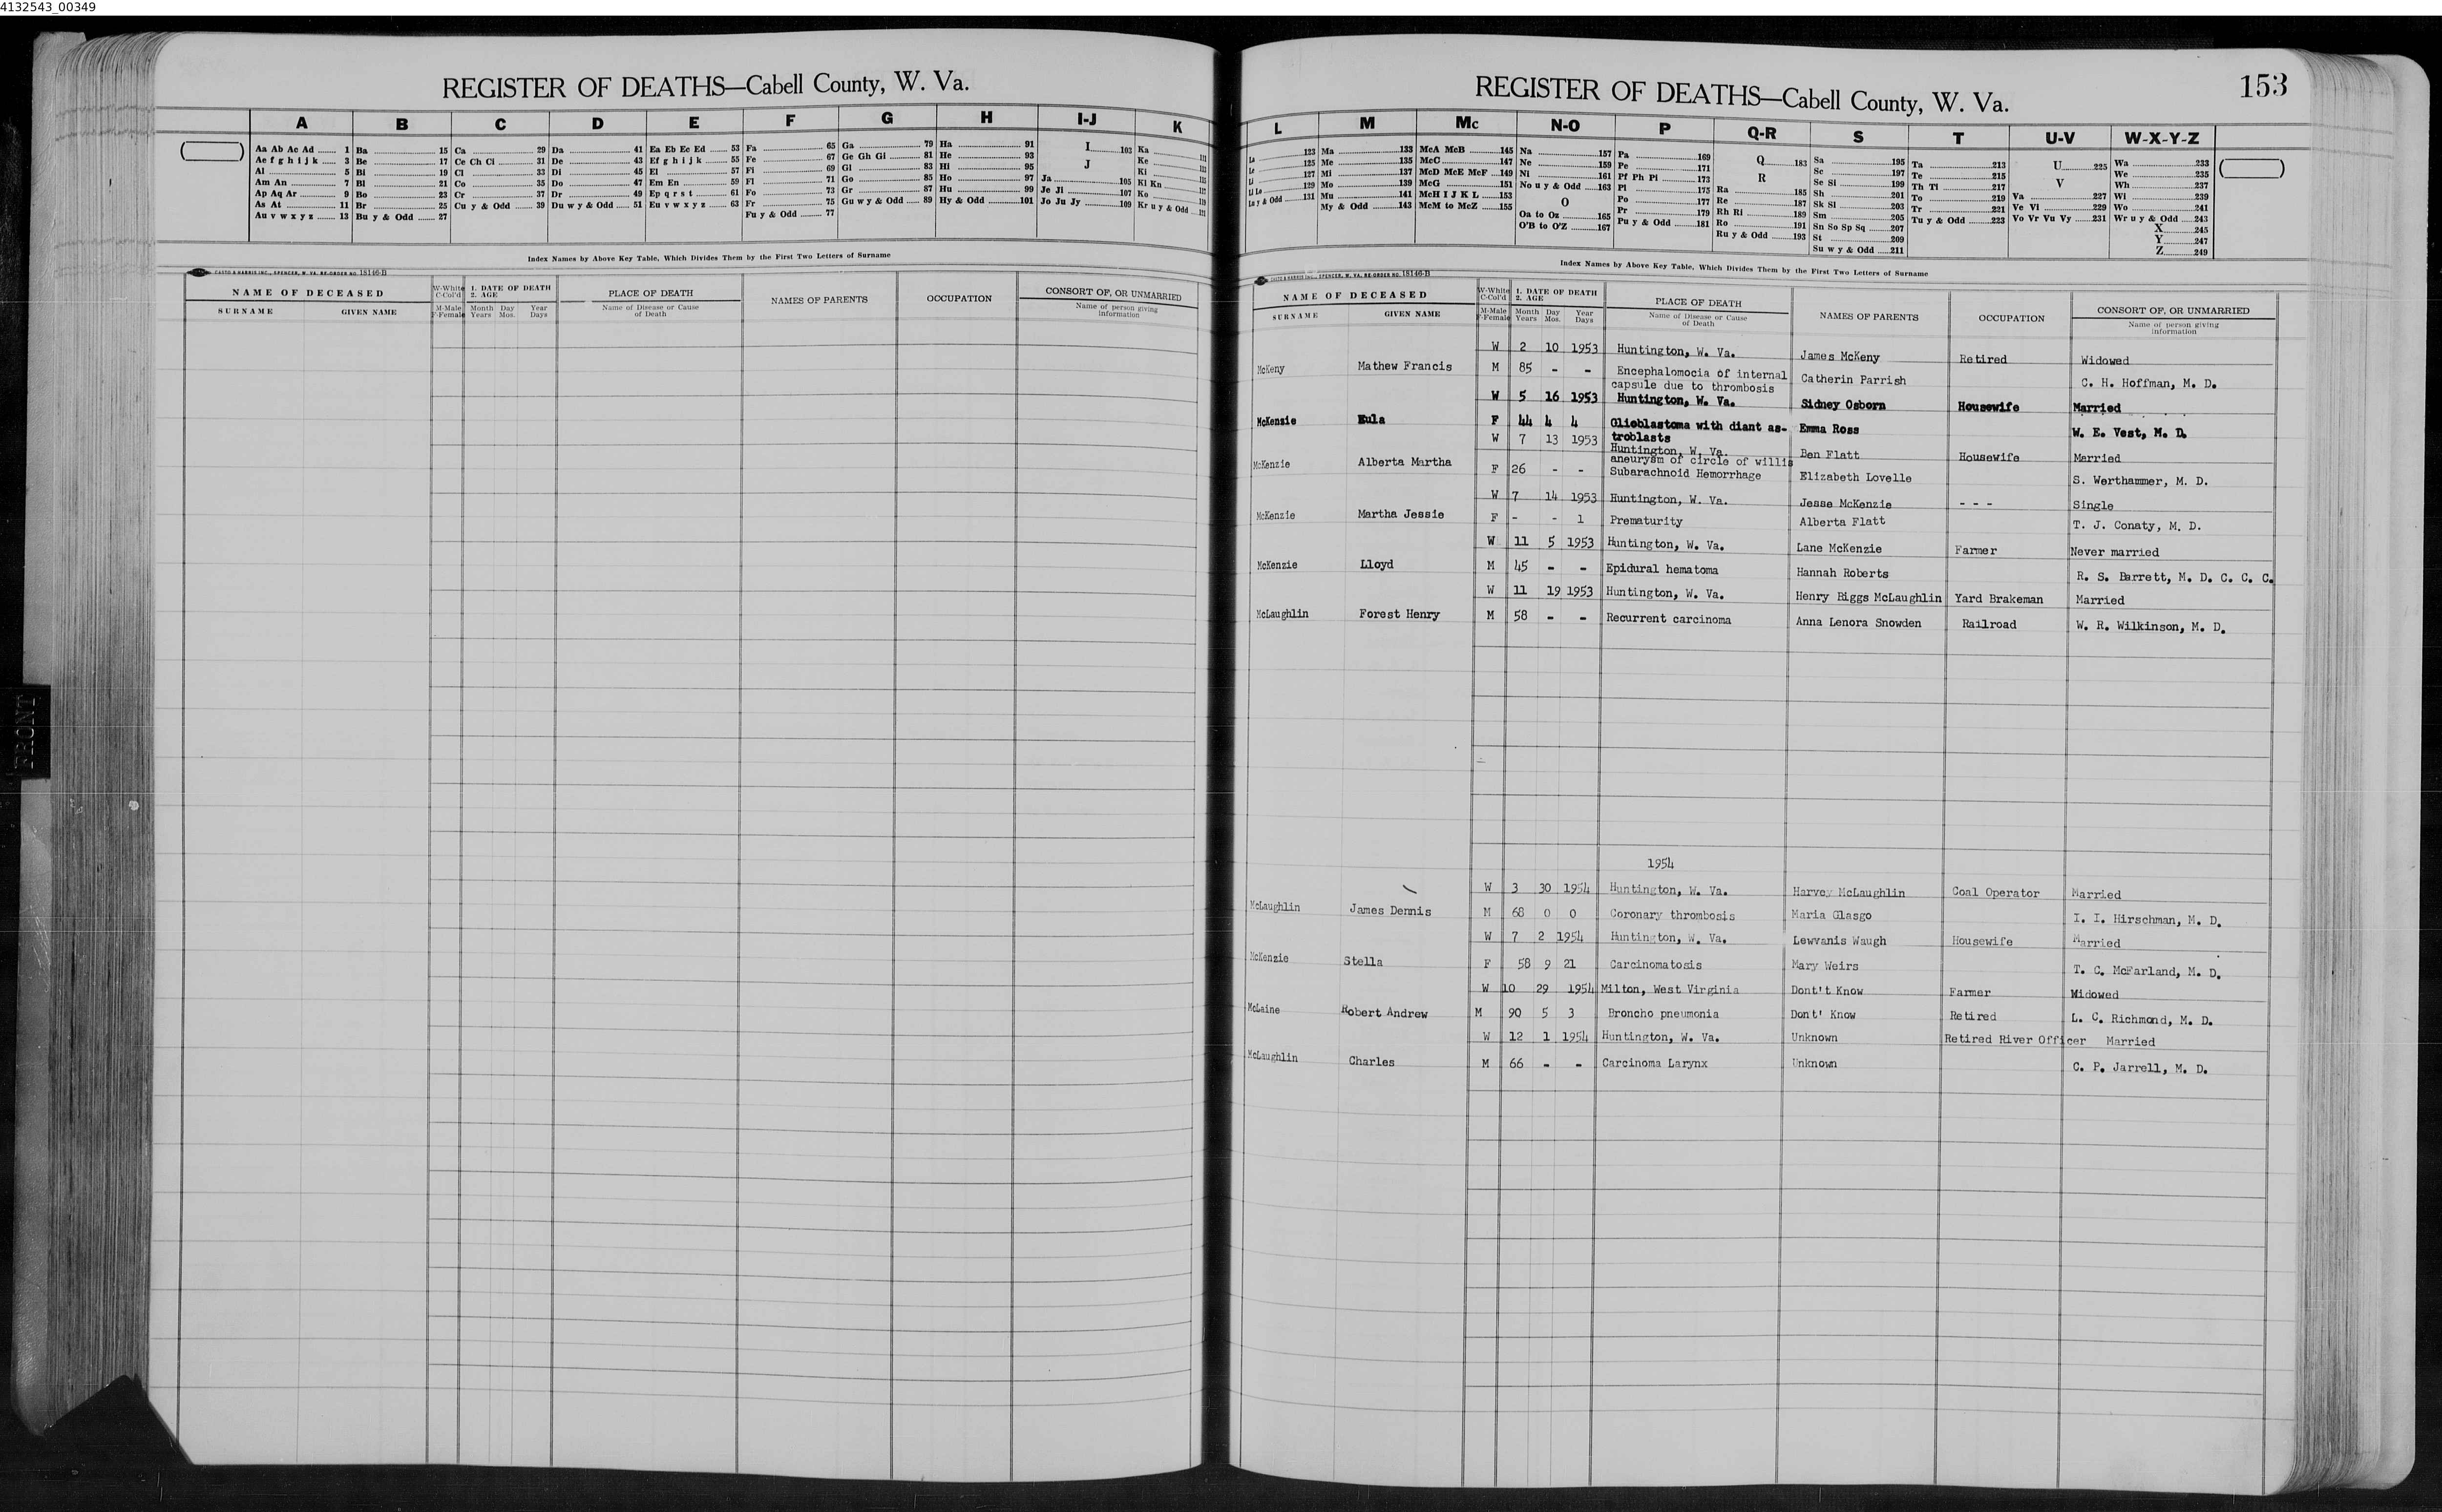 4132543_00349
REGISTER OF DEATHS—Cabell County, W. Va.
A B C D E F G H I-J K
Aa Ab Ac Ad 1 Ba 15 Ca 29 Da 41 Ea Eb Ec Ed 53 Fa 65 Ga 79 Ha 91 I 103 Ka
Ae f g h i j k 3 Be 17 Ce Ch Ci 31 De 43 Ef g h i j k 55 Fe 67 Ge Gh Gi 81 He 93 Ke
Al 5 Bi 19 Cl 33 Di 45 El 57 Fi 69 Gl 83 Hi 95 J Ki
Am An 7 Bl 21 Co 35 Do 47 Em En 59 Fl 71 Go 85 Ho 97 Ja 105 Kl Kn
Ap Aq Ar 9 Bo 23 Cr 37 Dr 49 Ep q r s t 61 Fo 73 Gr 87 Hu 99 Je Ji 107 Ko
As At 11 Br 25 Cu y & Odd 39 Du w y & Odd 51 Eu v w x y z 63 Fr 75 Gu w y & Odd 89 Hy & Odd 101 Jo Ju Jy 109 Kr u y & Odd
Au v w x y z 13 Bu y & Odd 27 Fu y & Odd 77
Index Names by Above Key Table, Which Divides Them by the First Two Letters of Surname
CASTO & HARRIS INC., SPENCER, W. VA. RE-ORDER NO. 18146-B
NAME OF DECEASED W-White C-Col'd 1. DATE OF DEATH 2. AGE PLACE OF DEATH NAMES OF PARENTS OCCUPATION CONSORT OF, OR UNMARRIED
SURNAME GIVEN NAME M-Male F-Female Month Years Day Mos. Year Days Name of Disease or Cause of Death Name of person giving information
FRONT
REGISTER OF DEATHS—Cabell County, W. Va. 153
L M Mc N-O P Q-R S T U-V W-X-Y-Z
La 123 Ma 133 McA McB 145 Na 157 Pa 169 Q 183 Sa 195 Ta 213 U 225 Wa 233
Le 125 Me 135 McC 147 Ne 159 Pe 171 R Sc 197 Te 215 V We 235
Li 127 Mi 137 McD McE McF 149 Ni 161 Pf Ph Pi 173 Ra 185 Se Si 199 Th Ti 217 Va 227 Wh 237
Ll Lo 129 Mo 139 McG 151 No u y & Odd 163 Pl 175 Re 187 Sh 201 To 219 Ve Vi 229 Wi 239
Lu y & Odd 131 Mu 141 McH I J K L 153 O Po 177 Rh Ri 189 Sk Sl 203 Tr 221 Vo Vr Vu Vy 231 Wo 241
My & Odd 143 McM to McZ 155 Oa to Oz 165 Pr 179 Ro 191 Sm 205 Tu y & Odd 223 Wr u y & Odd 243
O'B to O'Z 167 Pu y & Odd 181 Ru y & Odd 193 Sn So Sp Sq 207 X 245
St 209 Y 247
Su w y & Odd 211 Z 249
Index Names by Above Key Table, Which Divides Them by the First Two Letters of Surname
CASTO & HARRIS INC., SPENCER, W. VA. RE-ORDER NO. 18146-B
NAME OF DECEASED W-White C-Col'd 1. DATE OF DEATH 2. AGE PLACE OF DEATH NAMES OF PARENTS OCCUPATION CONSORT OF, OR UNMARRIED
SURNAME GIVEN NAME M-Male F-Female Month Years Day Mos. Year Days Name of Disease or Cause of Death Name of person giving information
W 2 10 1953 Huntington, W. Va. James McKeny Retired Widowed
McKeny Mathew Francis M 85 - - Encephalomocia of internal Catherin Parrish C. H. Hoffman, M. D.
capsule due to thrombosis
W 5 16 1953 Huntington, W. Va. Sidney Osborn Housewife Married
McKenzie Eula F 44 4 4 Glieblastoma with diant as- Emma Ross W. E. Vest, M. D.
troblasts
W 7 13 1953 Huntington, W. Va. Ben Flatt Housewife Married
McKenzie Alberta Martha aneurysm of circle of willis
F 26 - - Subarachnoid Hemorrhage Elizabeth Lovelle S. Werthammer, M. D.
W 7 14 1953 Huntington, W. Va. Jesse McKenzie - - - Single
McKenzie Martha Jessie F - - 1 Prematurity Alberta Flatt T. J. Conaty, M. D.
W 11 5 1953 Huntington, W. Va. Lane McKenzie Farmer Never married
McKenzie Lloyd M 45 - - Epidural hematoma Hannah Roberts R. S. Barrett, M. D. C. C. C.
W 11 19 1953 Huntington, W. Va. Henry Biggs McLaughlin Yard Brakeman Married
McLaughlin Forest Henry M 58 - - Recurrent carcinoma Anna Lenora Snowden Railroad W. R. Wilkinson, M. D.
1954
W 3 30 1954 Huntington, W. Va. Harvey McLaughlin Coal Operator Married
McLaughlin James Dennis M 68 0 0 Coronary thrombosis Maria Glasgo I. I. Hirschman, M. D.
W 7 2 1954 Huntington, W. Va. Lewvanis Waugh Housewife Married
McKenzie Stella F 58 9 21 Carcinomatosis Mary Weirs T. C. McFarland, M. D.
W 10 29 1954 Milton, West Virginia Dont't Know Farmer Widowed
McLaine Robert Andrew M 90 5 3 Broncho pneumonia Dont' Know Retired L. C. Richmond, M. D.
W 12 1 1954 Huntington, W. Va. Unknown Retired River Officer Married
McLaughlin Charles M 66 - - Carcinoma Larynx Unknown C. P. Jarrell, M. D.